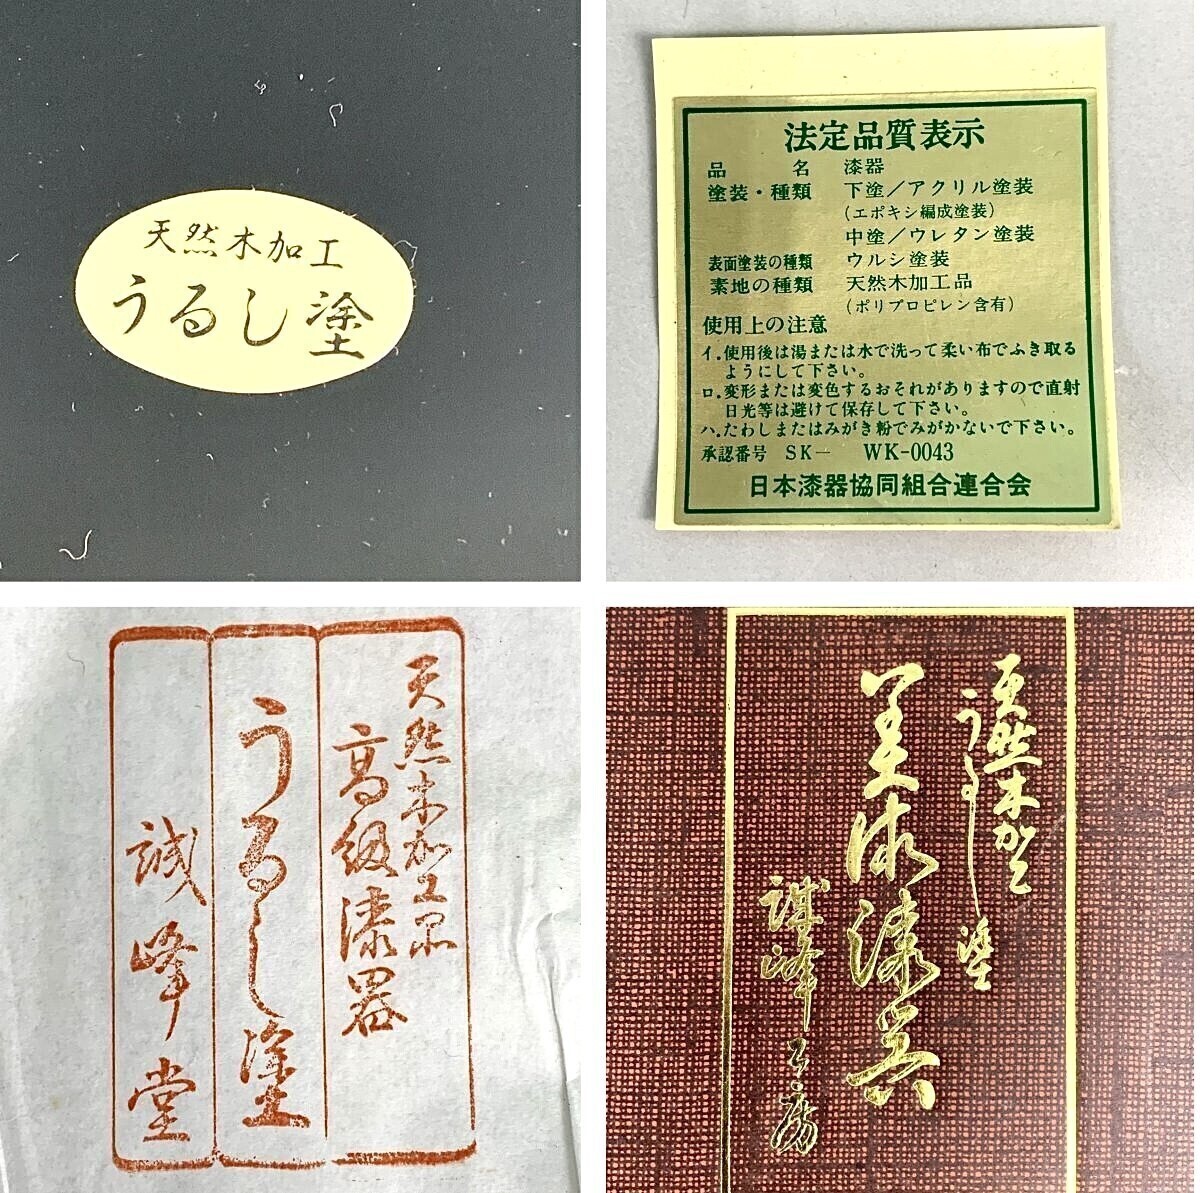 天然木加工
うるし塗
法定品質表示
品 名 漆器
塗装・種類 下塗／アクリル塗装
（エポキシ編成塗装）
中塗／ウレタン塗装
表面塗装の種類 ウルシ塗装
素地の種類 天然木加工品
（ポリプロピレン含有）
使用上の注意
イ.使用後は湯または水で洗って柔い布でふき取る
ようにして下さい。
ロ.変形または変色するおそれがありますので直射
日光等は避けて保存して下さい。
ハ.たわしまたはみがき粉でみがかないで下さい。
承認番号 SK― WK-0043
日本漆器協同組合連合会
天然木加工品
高級漆器
うるし塗
誠峰堂
天然木加工
うるし塗
美術漆器
誠峰工房